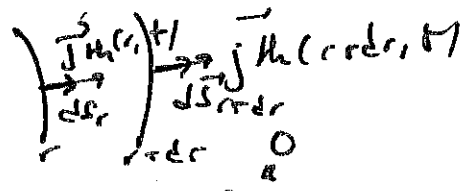 j⃗ th(r, t) j⃗ th(r+dr, t)
dS⃗r dS⃗r+dr
r r+dr 0